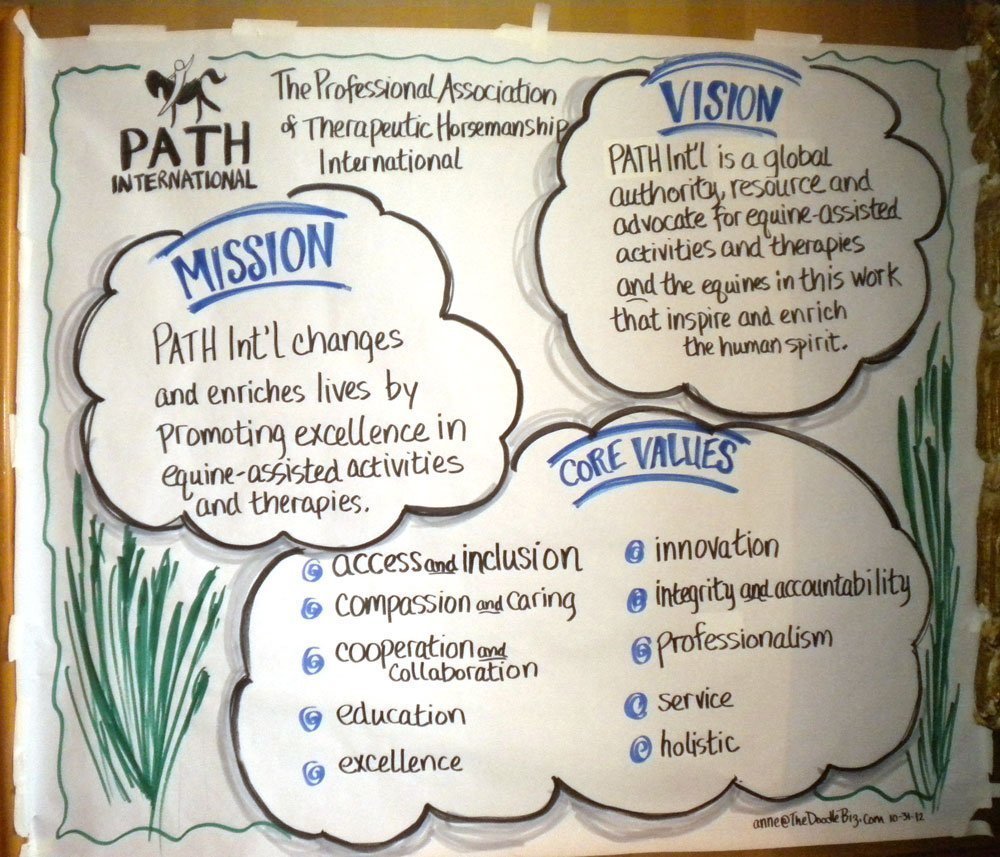 PATH
INTERNATIONAL
The Professional Association
of Therapeutic Horsemanship
International
VISION
PATH Int'l is a global
authority, resource and
advocate for equine-assisted
activities and therapies
and the equines in this work
that inspire and enrich
the human spirit.
MISSION
PATH Int'l changes
and enriches lives by
promoting excellence in
equine-assisted activities
and therapies.
CORE VALUES
access and inclusion
compassion and caring
cooperation and
collaboration
education
excellence
innovation
integrity and accountability
professionalism
service
holistic
anne@TheDoodleBiz.com 10-31-12